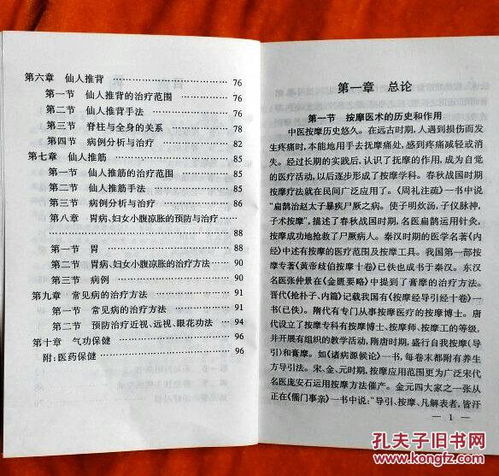 第六章 仙人推背 76
第一节 仙人推背的治疗范围 76
第二节 仙人推背手法 76
第三节 脊柱与全身的关系 78
第四节 病例分析与治疗 82
第七章 仙人推筋 85
第一节 仙人推筋的治疗范围 85
第二节 仙人推筋手法 85
第三节 病例分析与治疗 85
第八章 胃病、妇女小腹凉胀的预防与治疗
88
第一节 胃 88
第二节 胃病、妇女小腹凉胀的治疗方法 90
第三节 病例 90
第九章 常见病的治疗方法 91
第一节 常见病的治疗方法 91
第二节 预防治疗近视、远视、眼花功法 94
第十章 气功保健 96
附:医药保健 96
第一章 总论
第一节 按摩医术的历史和作用
中医按摩历史悠久。在远古时期,人遇到损伤而发
生疼痛时,本能地用手去抚摩痛处,感到疼痛减轻或消
失。经过长期的实践后,认识了抚摩的作用,成为自觉
的医疗活动,以后逐步形成了按摩学科。春秋战国时期,
按摩疗法就在民间广泛应用了。《周礼注疏》一书中说
“扁鹊治赵太子暴疾尸厥之病。使子明炊汤,子仪脉神,
子术按摩”,描述了春秋战国时期,名医扁鹊运用针灸、
按摩成功地抢救了尸厥病人。秦汉时期的医学名著《内
经》中述有按摩的医疗范围及按摩工具。我国第一部按
摩专著《黄帝歧伯按摩十卷》已佚也成书于秦汉。东汉
名医张仲景在《金匮要略》中提到了膏摩的治疗方法。
晋代《抢朴子、内篇》记载我国有《按摩经导引经十卷》一
书(已佚)。隋代有专门从事按摩医疗的按摩博士。唐
代成立了按摩专科有按摩博士、按摩师、按摩工的等级,
并开展有组织的教学活动,隋唐时期,盛行自我按摩(导
引)和膏摩。如《诸病源候论》一书,每卷末都附有养生
方导引法。宋、金、元时期,按摩应用范围更为广泛宋代
名医庞安石运用按摩方法催产。金元四大家之一张从
正在《儒门事亲》一书中说:“导引、按摩、凡解表者,皆汗
— 1 —
孔夫子旧书网
kongfz.com